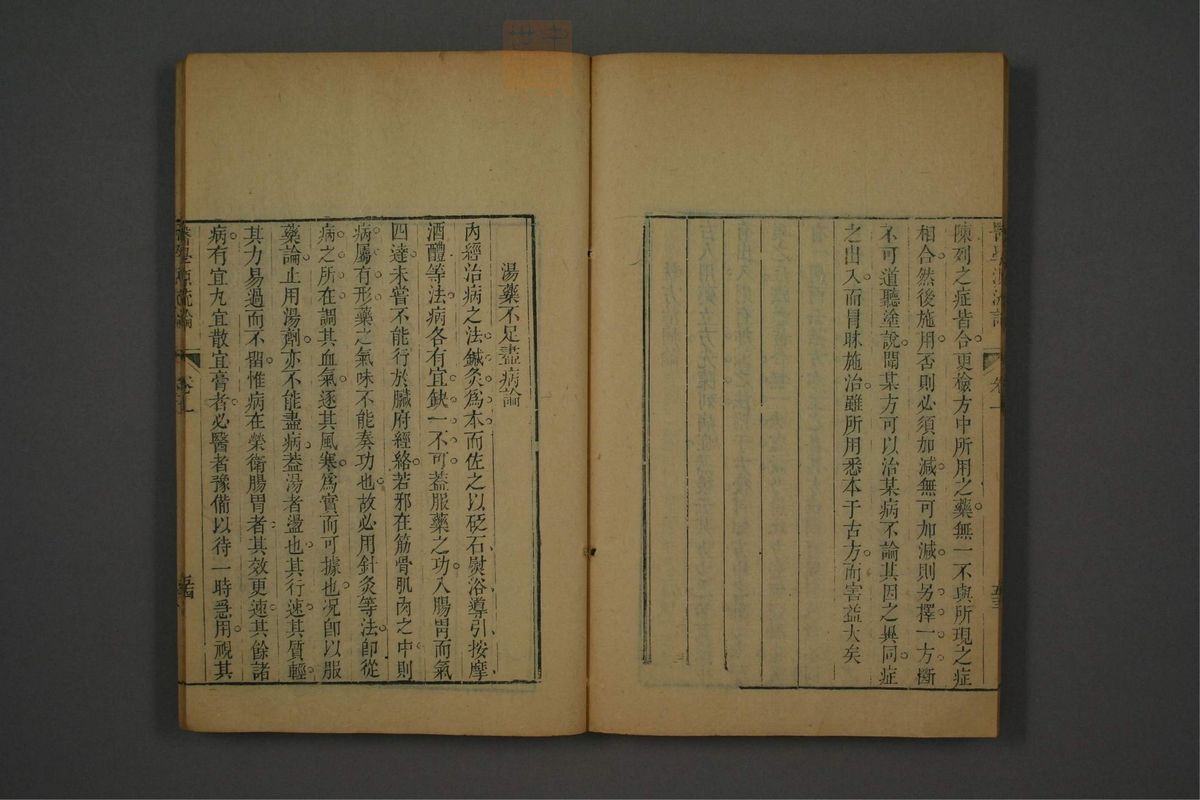 陳列之症皆合更檢方中所用之藥無一不與所現之症
相合然後施用否則必須加減無可加減則另擇一方斷
不可道聽塗說聞某方可以治某病不論其因之異同症
之出入而冒昧施治雖所用悉本于古方而害益大矣
湯藥不足盡病論
內經治病之法鍼灸爲本而佐之以砭石熨浴導引按摩
酒醴等法病各有宜缺一不可蓋服藥之功入腸胃而氣
四達未嘗不能行於臟府經絡若邪在筋骨肌肉之中則
病屬有形藥之氣味不能奏功也故必用針灸等法卽從
病之所在調其血氣逐其風寒爲實而可據也况卽以服
藥論止用湯劑亦不能盡病葢湯者盪也其行速其質輕
其力易過而不留惟病在榮衛腸胃者其效更速其餘諸
病有宜丸宜散宜膏者必醫者豫備以待一時急用視其
醫學源流論
卷一